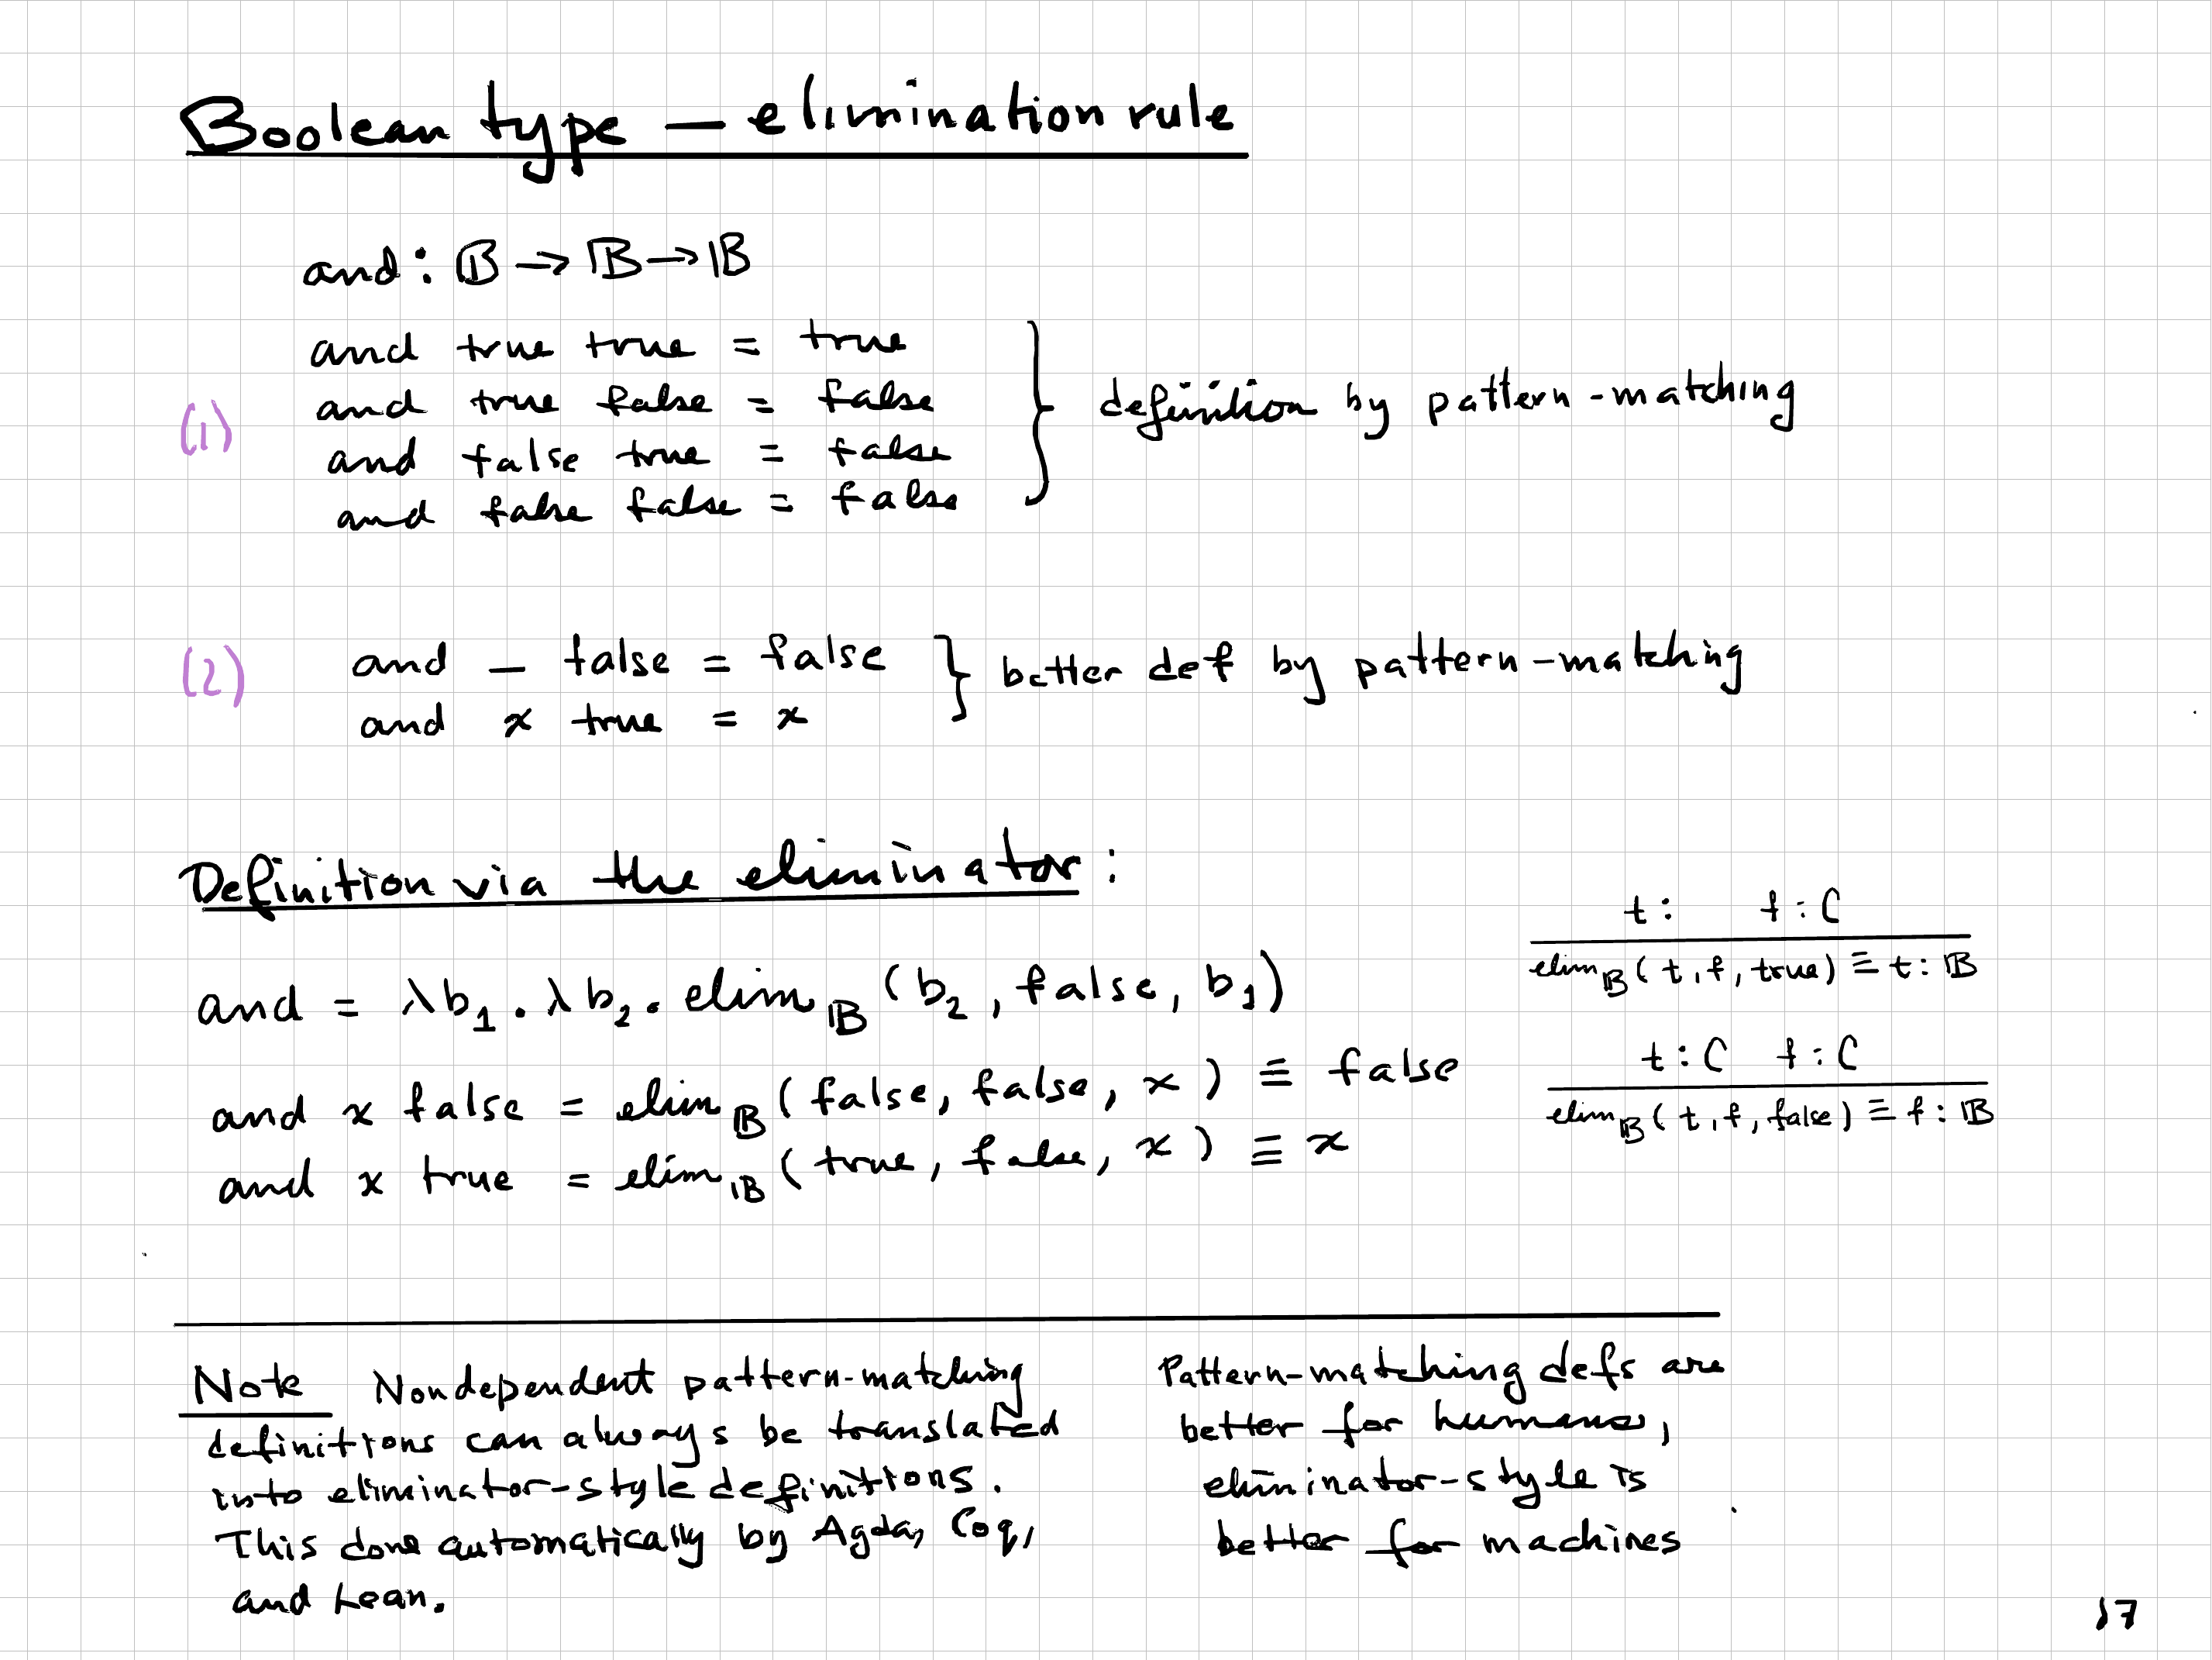 Boolean type — elimination rule
and : 𝔹 → 𝔹 → 𝔹
and true true = true
and true false = false
(1)
and false true = false
and false false = false
definition by pattern-matching
(2)
and _ false = false
and x true = x
better def by pattern-matching
Definition via the eliminator :
and = λb₁. λb₂. elim_𝔹 (b₂, false, b₁)
and x false = elim_𝔹 (false, false, x) ≡ false
and x true = elim_𝔹 (true, false, x) ≡ x
t :   f : C
elim_𝔹 (t, f, true) ≡ t : 𝔹
t : C   f : C
elim_𝔹 (t, f, false) ≡ f : 𝔹
Note Nondependent pattern-matching
definitions can always be translated
into eliminator-style definitions.
This done automatically by Agda, Coq,
and Lean.
Pattern-matching defs are
better for humans,
eliminator-style is
better for machines
17